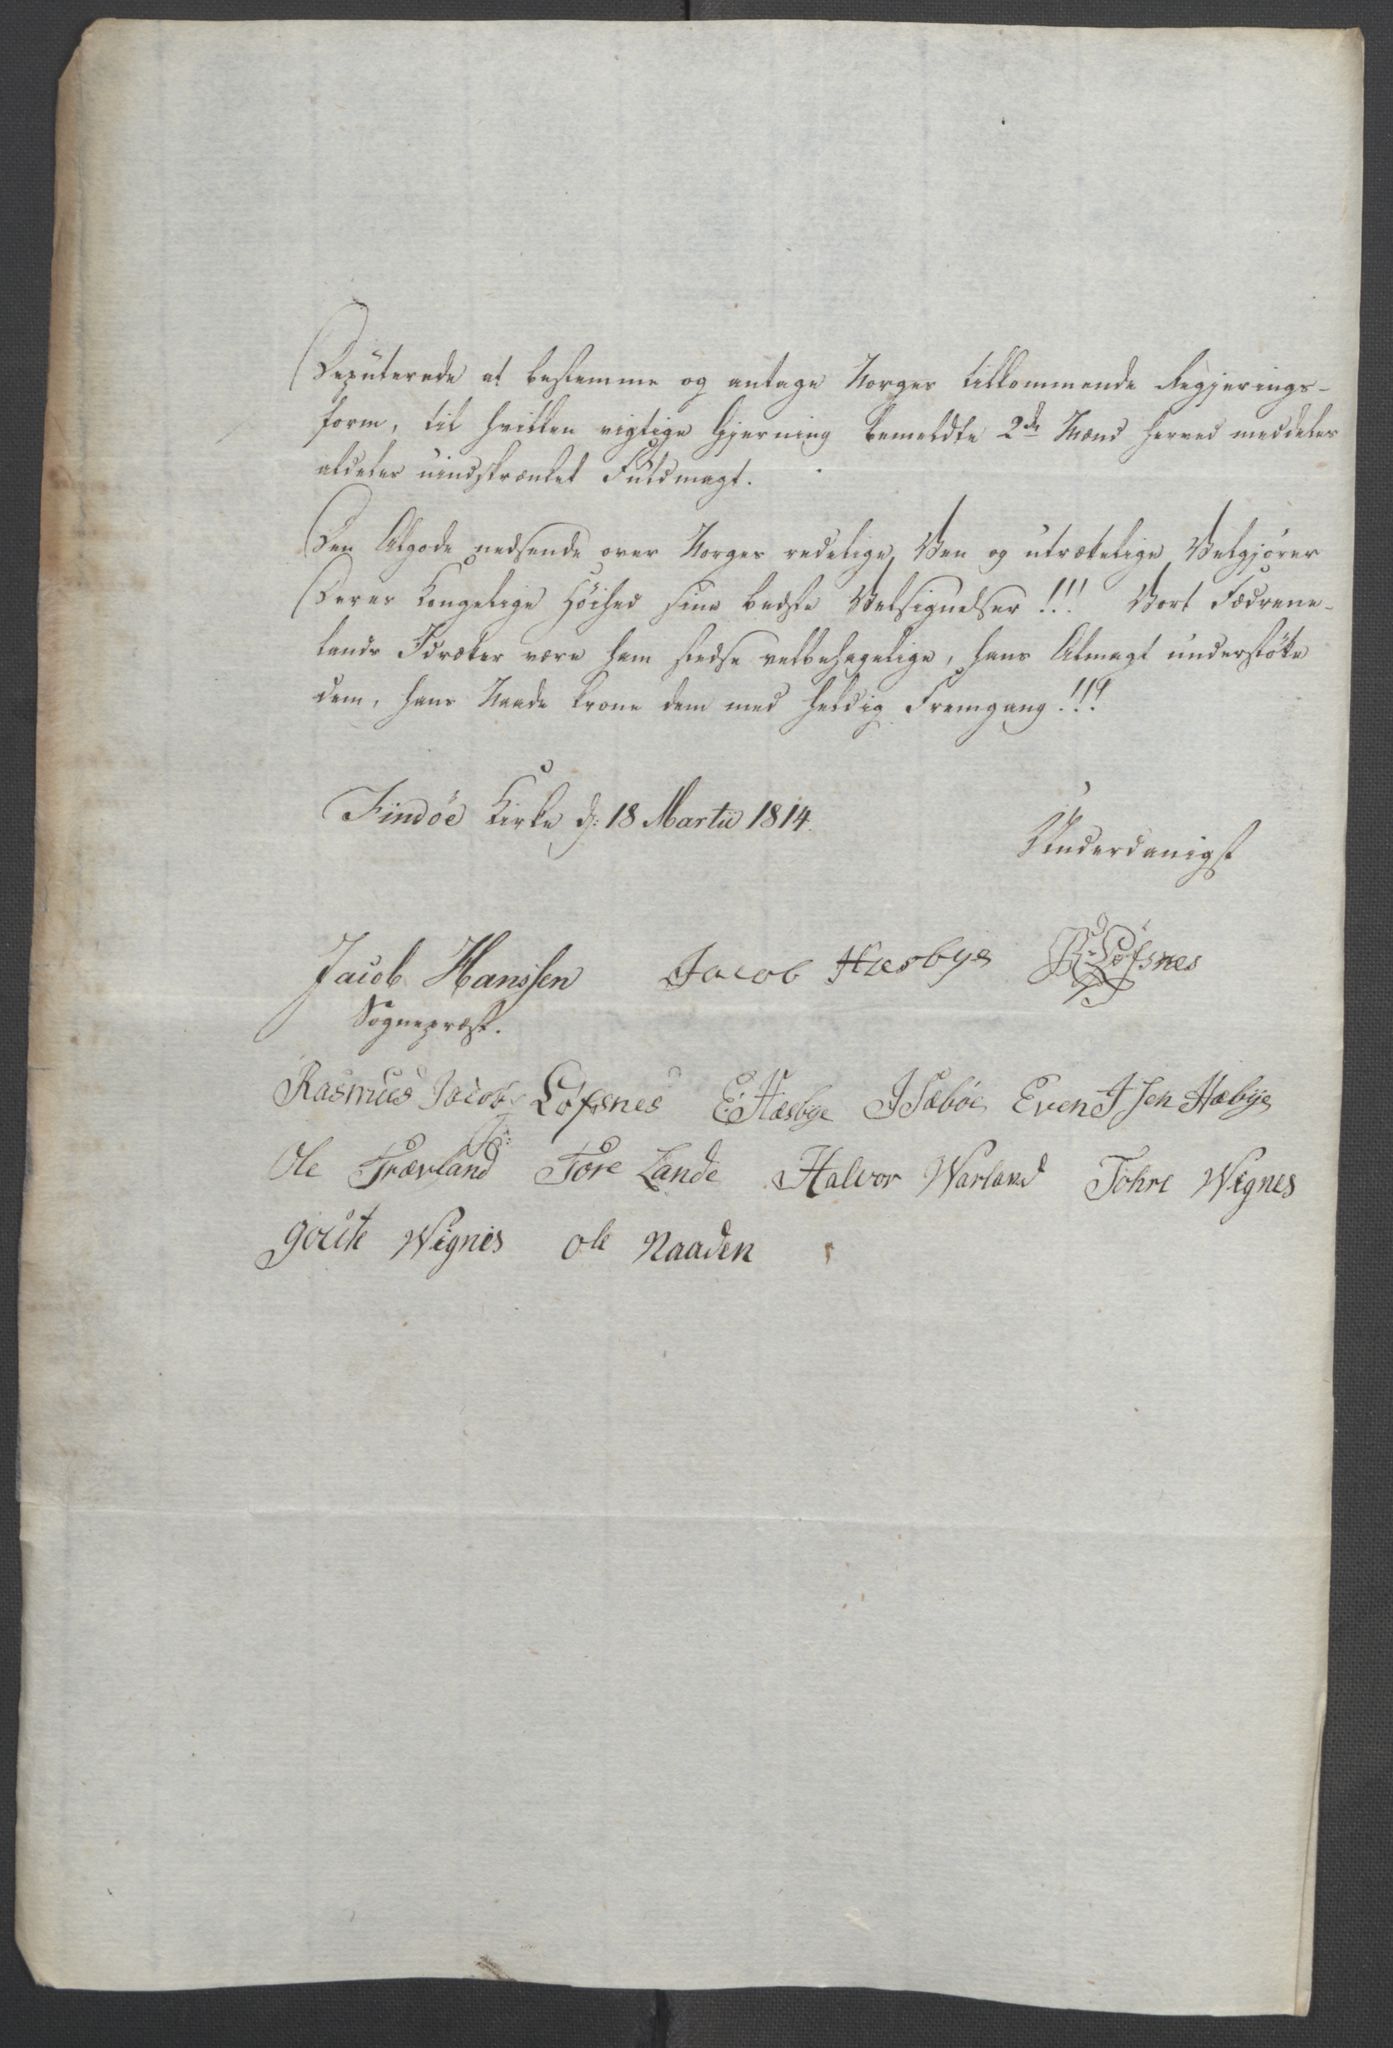 Deputerede at bestemme og antage Norges tilkommende Regjerings-
form, til hvilken vigtige Gjerning bemeldte 2de Mænd herved meddeles
aldeles uindskrænket Fuldmagt.
Den Algode nedsende over Norges redelige Ven og utrættelige Velgjører
Deres Kongelige Höihed sine bedste Velsignelser!!! Vort Fædrene-
lands Idræter være ham stedse velbehagelige, hans Almagt understötte
dem, hans Naade krone dem med heldig Fremgang!!!
Findöe Kirke d: 18 Martii 1814.
Underdanigst
Jacob Hanssen Jacob Hæsbye R Löfsnes
Sognepræst.
Rasmus Jacobs Löfsnes E Hæsbye J Sæböe Even J Sen Hæbye
Ole Trævland Tore Lande Halvor Warland Tohre Wignes
goute Wignes ole Naaden